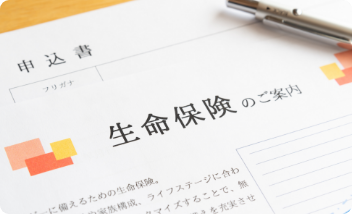 申込書
フリガナ
生命保険のご案内
に備えるための生命保険。
家族構成、ライフステージに合わ
タマイズすることで、無
を充実させ